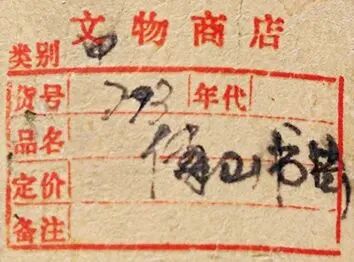 文物商店
类别
货号 293 年代
品名 傅山书
定价
备注